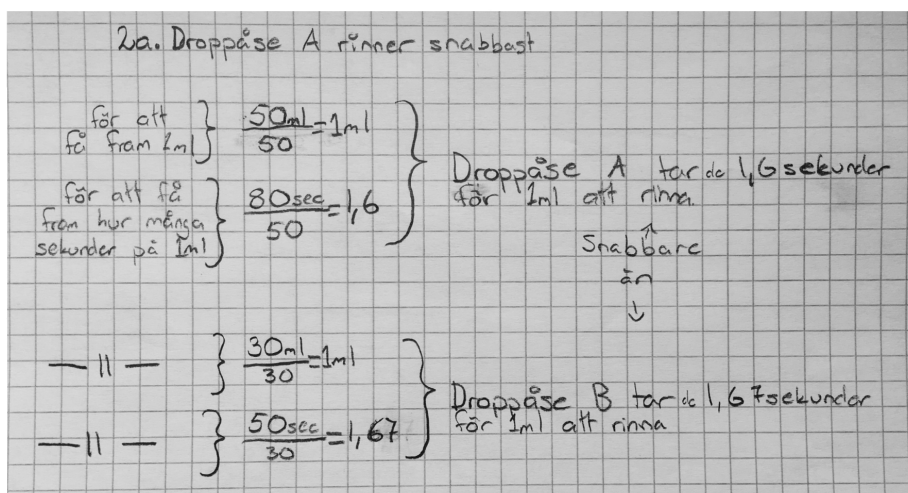 2a. Droppåse A rinner snabbast
för att
få fram 1ml
50ml/50 = 1ml
för att få
fram hur många
sekunder på 1ml
80sec/50 = 1,6
Droppåse A tar de 1,6 sekunder
för 1ml att rinna.
Snabbare
än
— 11 —
30ml/30 = 1ml
— 11 —
50sec/30 = 1,67
Droppåse B tar de 1,67 sekunder
för 1ml att rinna